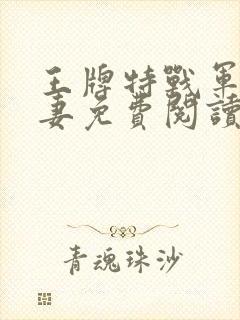 王牌特戰軍
妻免費閱讀
青魂珠沙